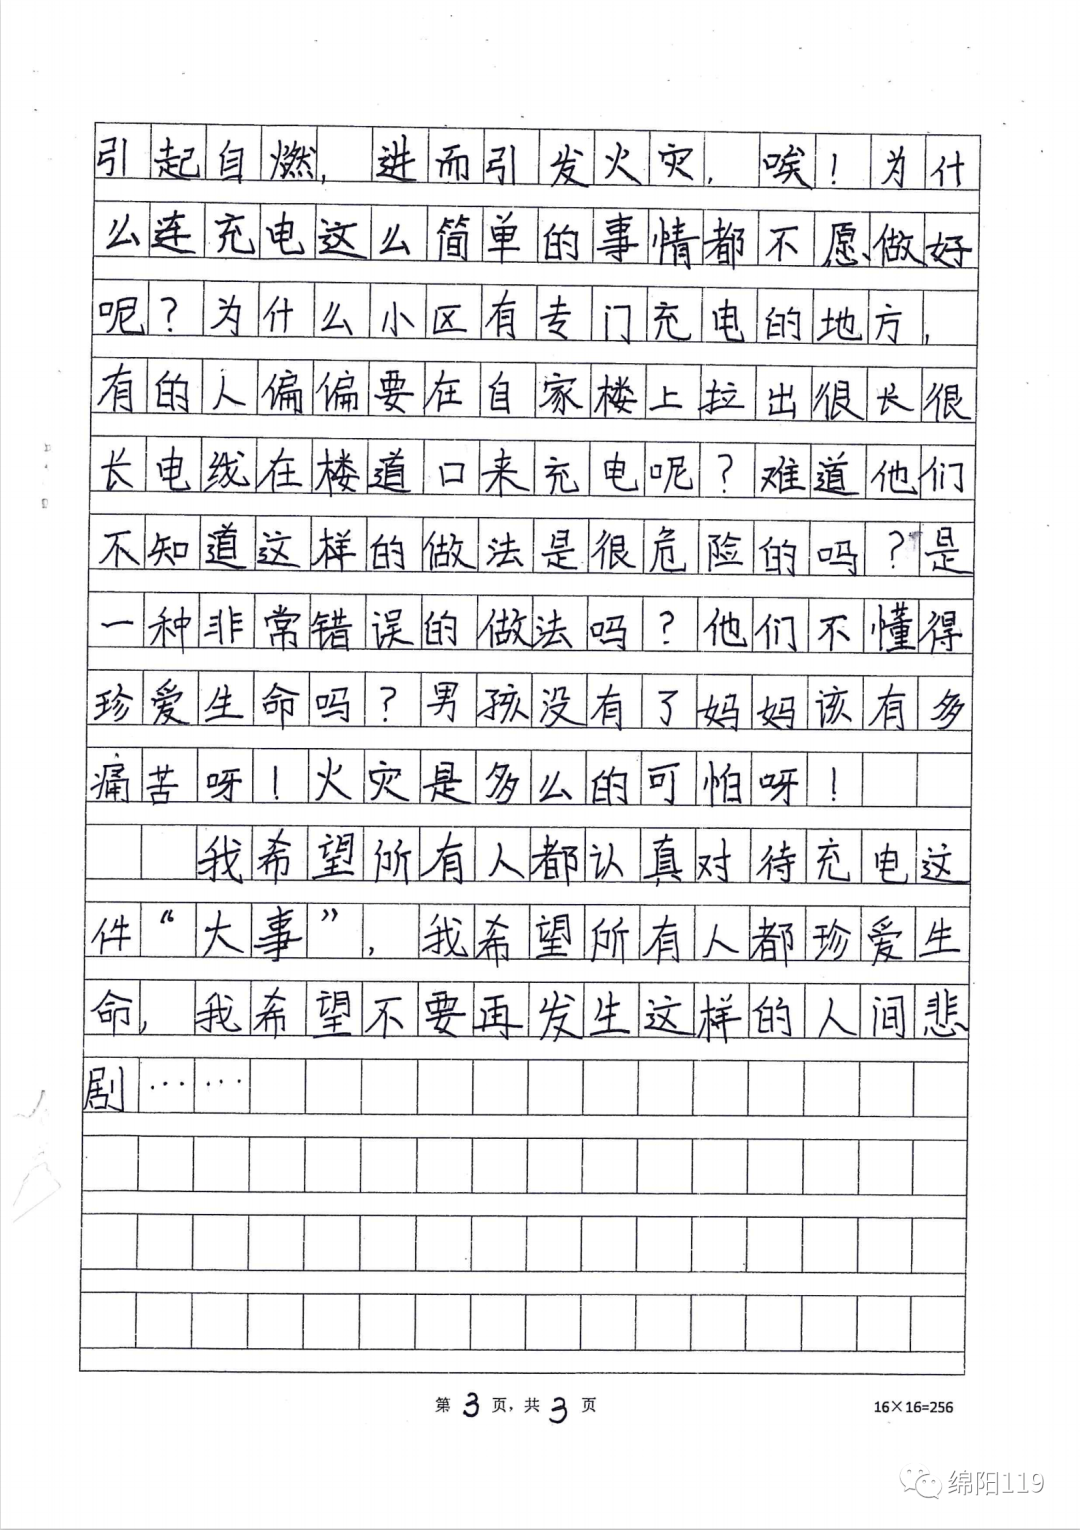 引起自燃，进而引发火灾，唉！为什
么连充电这么简单的事情都不愿做好
呢？为什么小区有专门充电的地方，
有的人偏偏要在自家楼上拉出很长很
长电线在楼道口来充电呢？难道他们
不知道这样的做法是很危险的吗？是
一种非常错误的做法吗？他们不懂得
珍爱生命吗？男孩没有了妈妈该有多
痛苦呀！火灾是多么的可怕呀！
我希望所有人都认真对待充电这
件“大事”，我希望所有人都珍爱生
命，我希望不要再发生这样的人间悲
剧……
第3页，共3页
16×16=256
绵阳119